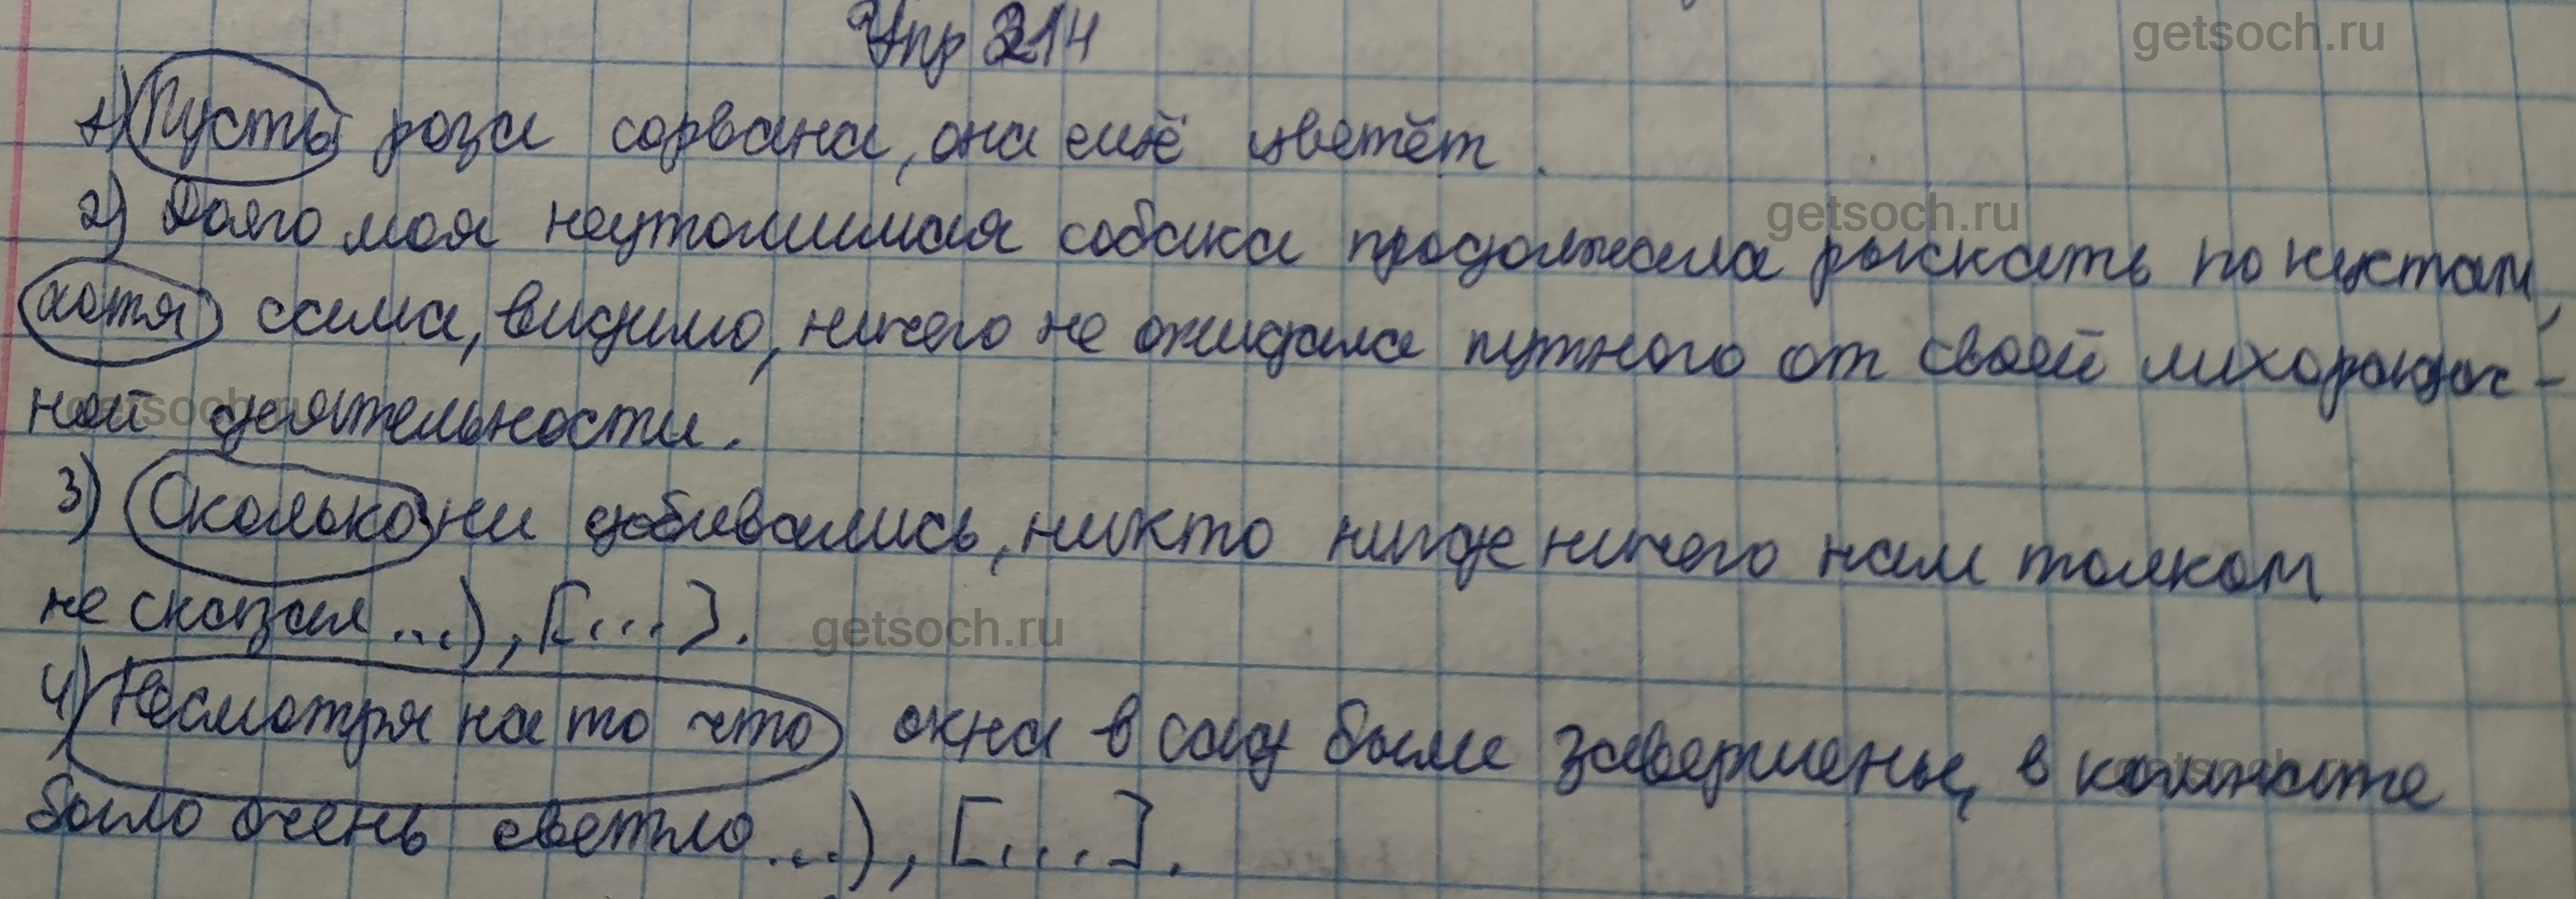 Упр 214
1) Пусть роза сорвана, она ещё цветёт.
2) Долго моя неутомимая собака продолжала рыскать по кустам,
хотя сама, видимо, ничего не ожидала путного от своей лихорадоч-
ной деятельности.
3) Сколько ни добивались, никто нигде ничего нам толком
не сказал ...), [...].
4) Несмотря на то что окна в сад были завершены, в комнате
было очень светло ...), [...].
getsoch.ru
getsoch.ru
getsoch.ru
getsoch.ru
getsoch.ru